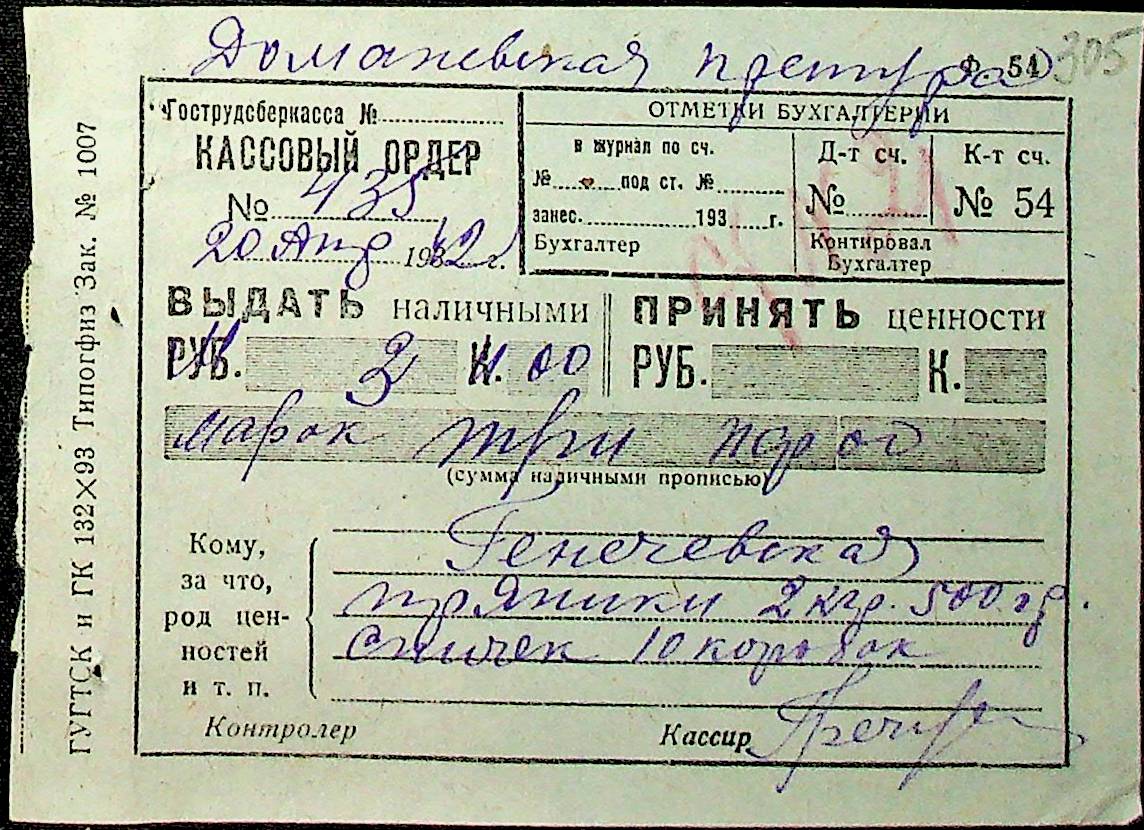 Доманевская претура Ф. 54 305
Гострудсберкасса №
КАССОВЫЙ ОРДЕР
№ 435
20 Апр 1942 г.
ОТМЕТКИ БУХГАЛТЕРИИ
в журнал по сч.
№ под ст. №
занес. 193 г.
Бухгалтер
Д-т сч.
№
К-т сч.
№ 54
Контировал
Бухгалтер
ВЫДАТЬ наличными
РУБ. 3 К. 00
ПРИНЯТЬ ценности
РУБ. К.
марок три 00
(сумма наличными прописью)
Кому,
за что,
род цен-
ностей
и т. п.
Геничевская
пряники 2 кгр. 500 гр.
спичек 10 коробок
Контролер
Кассир
ГУГТСК и ГК 132×93 Типогфиз Зак. № 1007